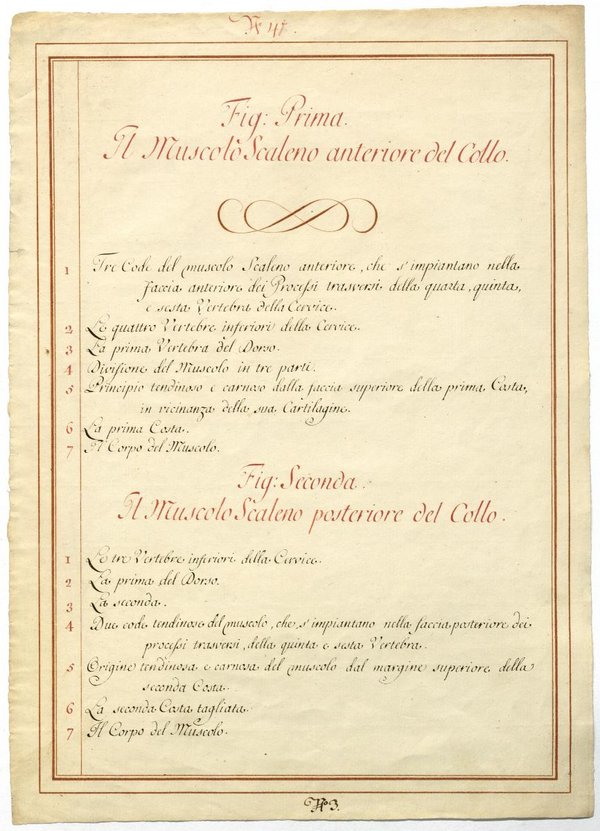 N 41
Fig: Prima.
Il Muscolo Scaleno anteriore del Collo.
1 Tre Code del muscolo Scaleno anteriore, che s'impiantano nella
faccia anteriore dei Processi trasversi della quarta, quinta,
e sesta Vertebra della Cervice.
2 Le quattro Vertebre inferiori della Cervice.
3 La prima Vertebra del Dorso.
4 Divisione del Muscolo in tre parti.
5 Principio tendinoso e carnoso dalla faccia superiore della prima Costa,
in vicinanza della sua Cartilagine.
6 La prima Costa.
7 Il Corpo del Muscolo.
Fig: Seconda.
Il Muscolo Scaleno posteriore del Collo.
1 Le tre Vertebre inferiori della Cervice.
2 La prima del Dorso.
3 La seconda.
4 Due code tendinose del muscolo, che s'impiantano nella faccia posteriore dei
processi trasversi, della quinta e sesta Vertebra.
5 Origine tendinosa e carnosa del muscolo dal margine superiore della
seconda Costa.
6 La seconda Costa tagliata.
7 Il Corpo del Muscolo.
3.